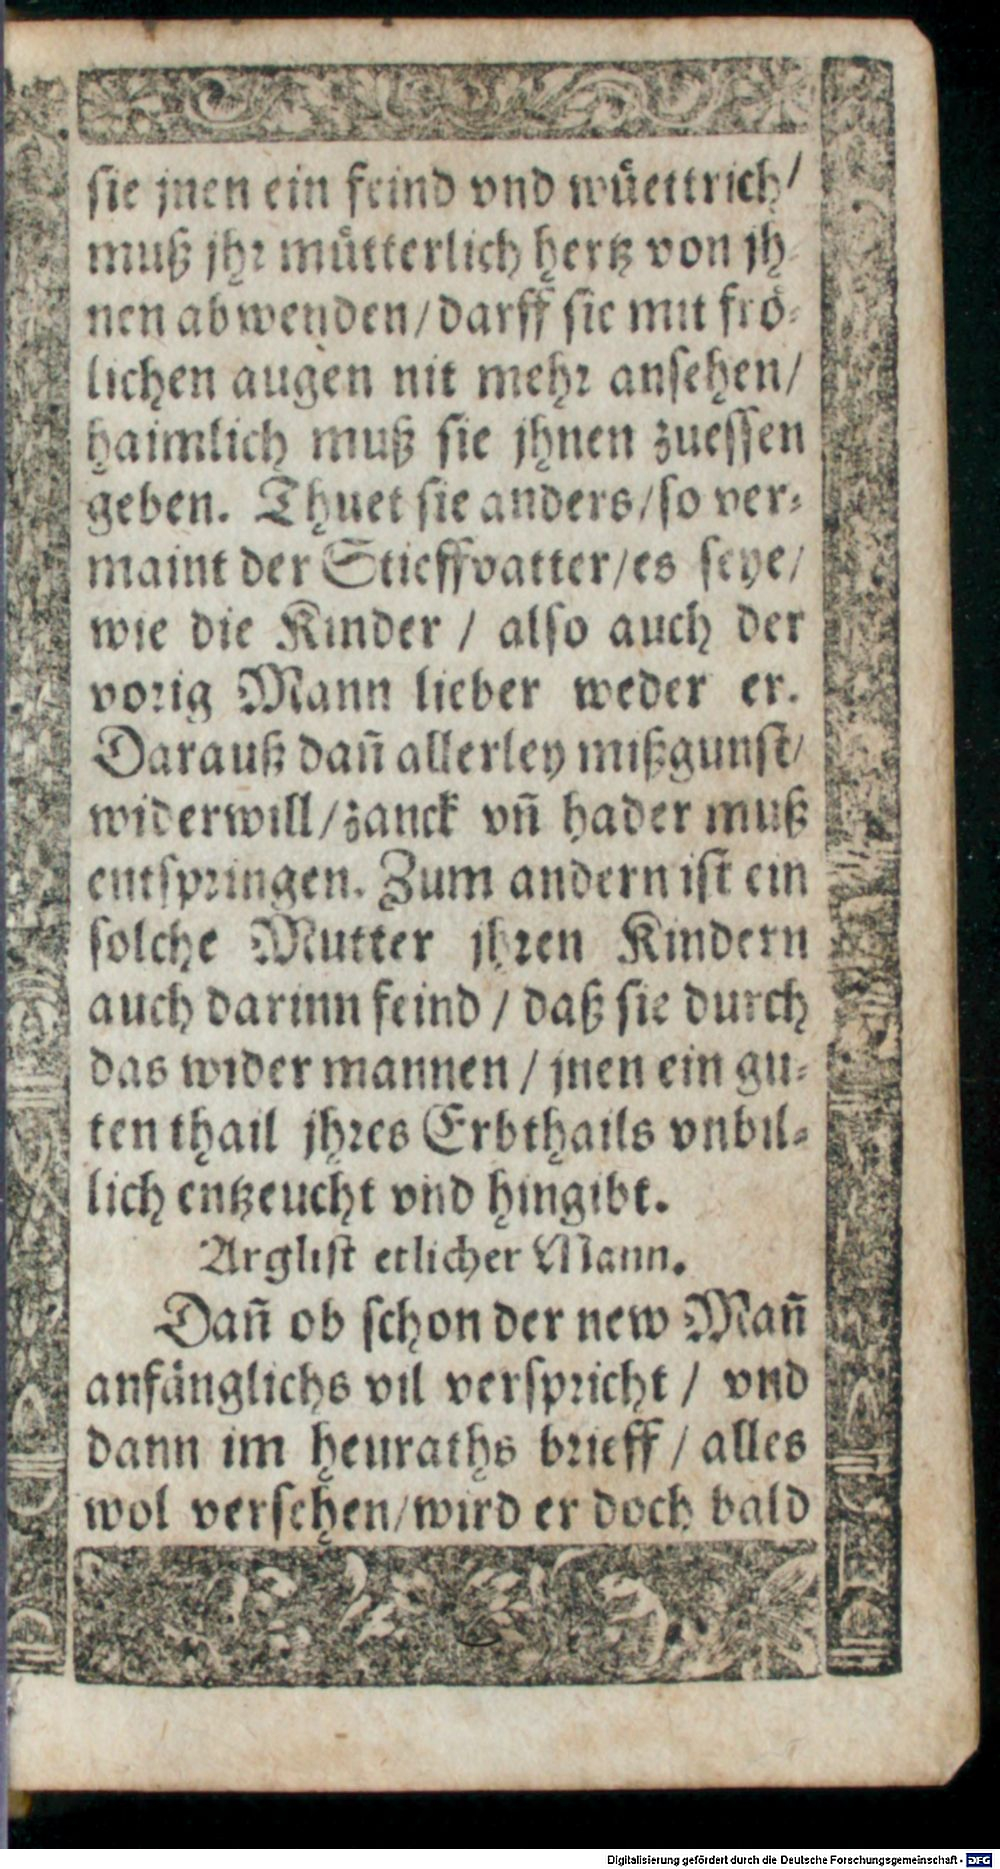 sie jnen ein feind vnd wüettrich/
muß jhr mütterlich hertz von jh-
nen abwenden/darff sie mit frö-
lichen augen nit mehr ansehen/
haimlich muß sie jhnen zuessen
geben. Thuet sie anders/so ver-
maint der Stieffvatter/es seye/
wie die Kinder / also auch der
vorig Mann lieber weder er.
Darauß dañ allerley mißgunst/
widerwill/zanck vñ hader muß
entspringen. Zum andern ist ein
solche Mutter jhren Kindern
auch darinn feind / daß sie durch
das wider mannen / jnen ein gu-
ten thail jhres Erbthails vnbil-
lich entzeucht vnd hingibt.
Arglist etlicher Mann.
Dañ ob schon der new Mañ
anfänglichs vil verspricht / vnd
dann im heuraths brieff / alles
wol versehen/wird er doch bald
Digitalisierung gefördert durch die Deutsche Forschungsgemeinschaft - DFG